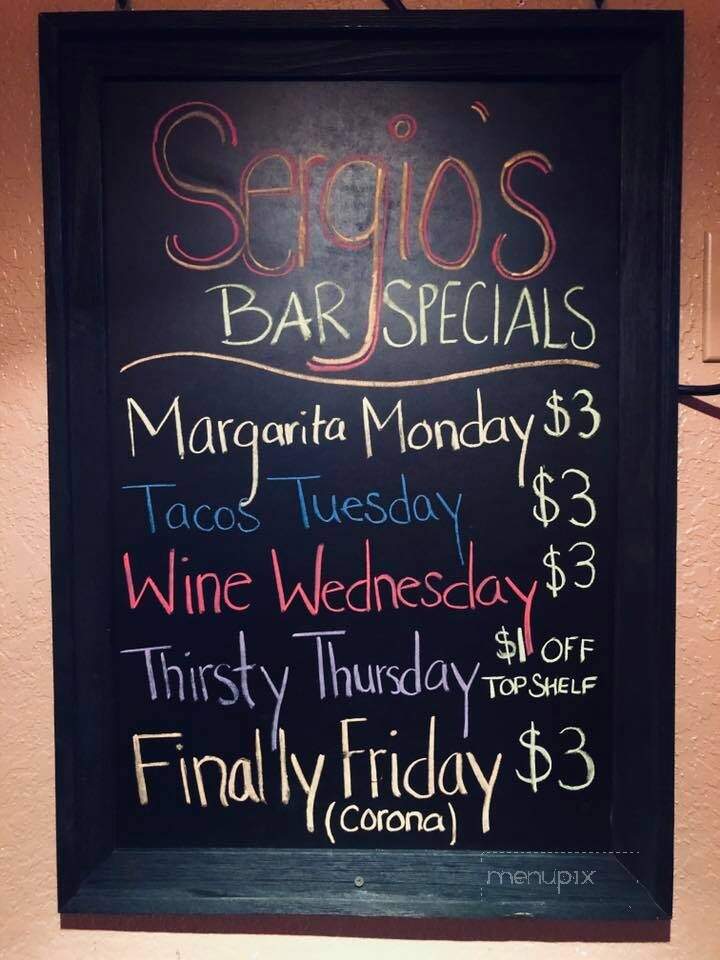 Sergio's
BAR SPECIALS
Margarita Monday $3
Tacos Tuesday $3
Wine Wednesday $3
Thirsty Thursday $1 OFF
TOP SHELF
Finally Friday $3
(Corona)
menupix